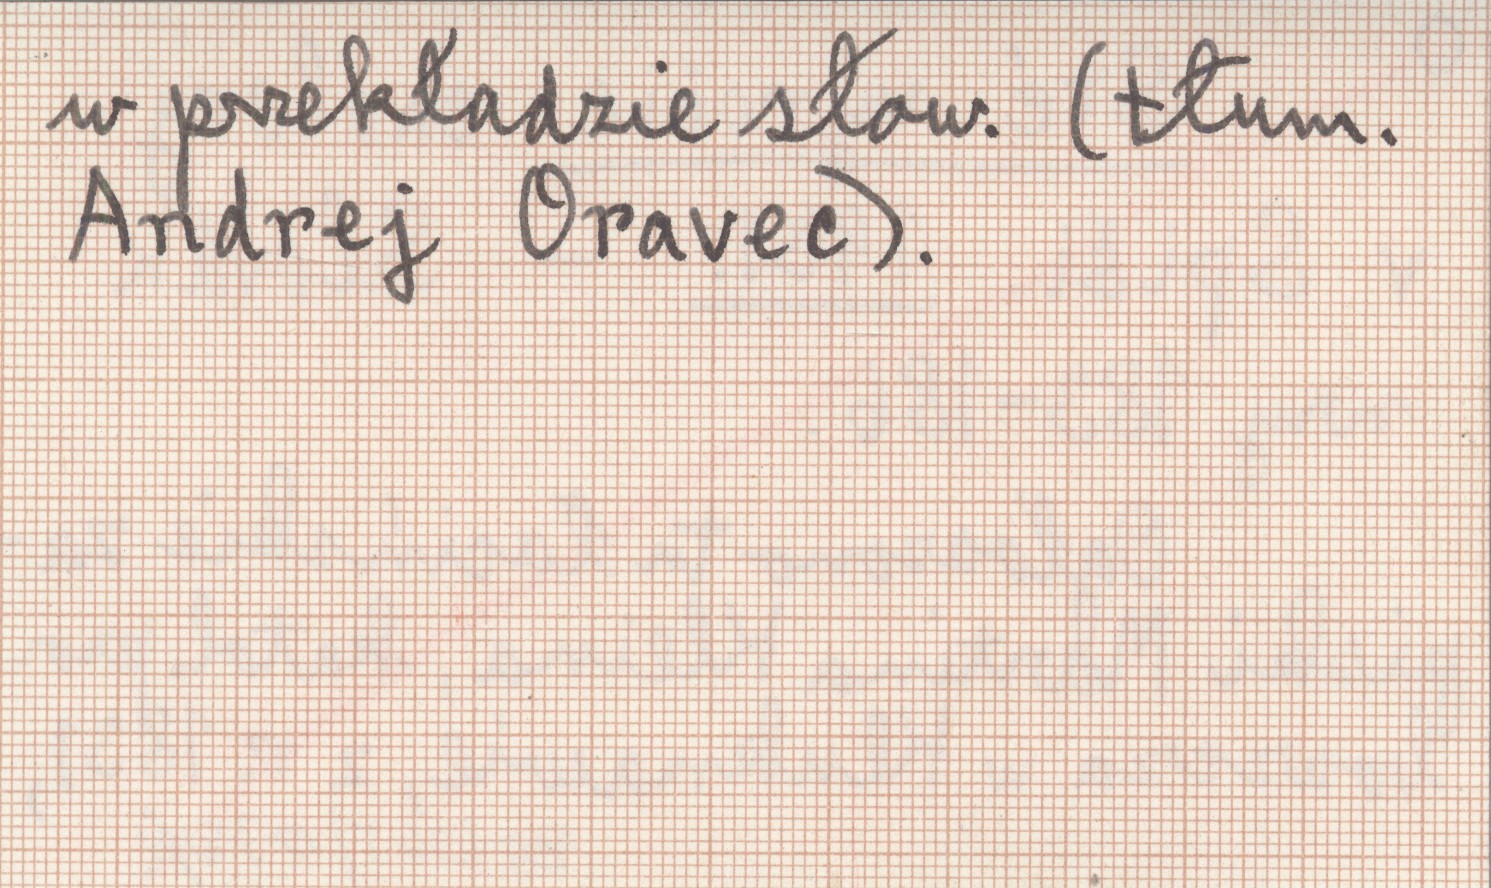 w przekładzie słow. (tłum.
Andrej Oravec).